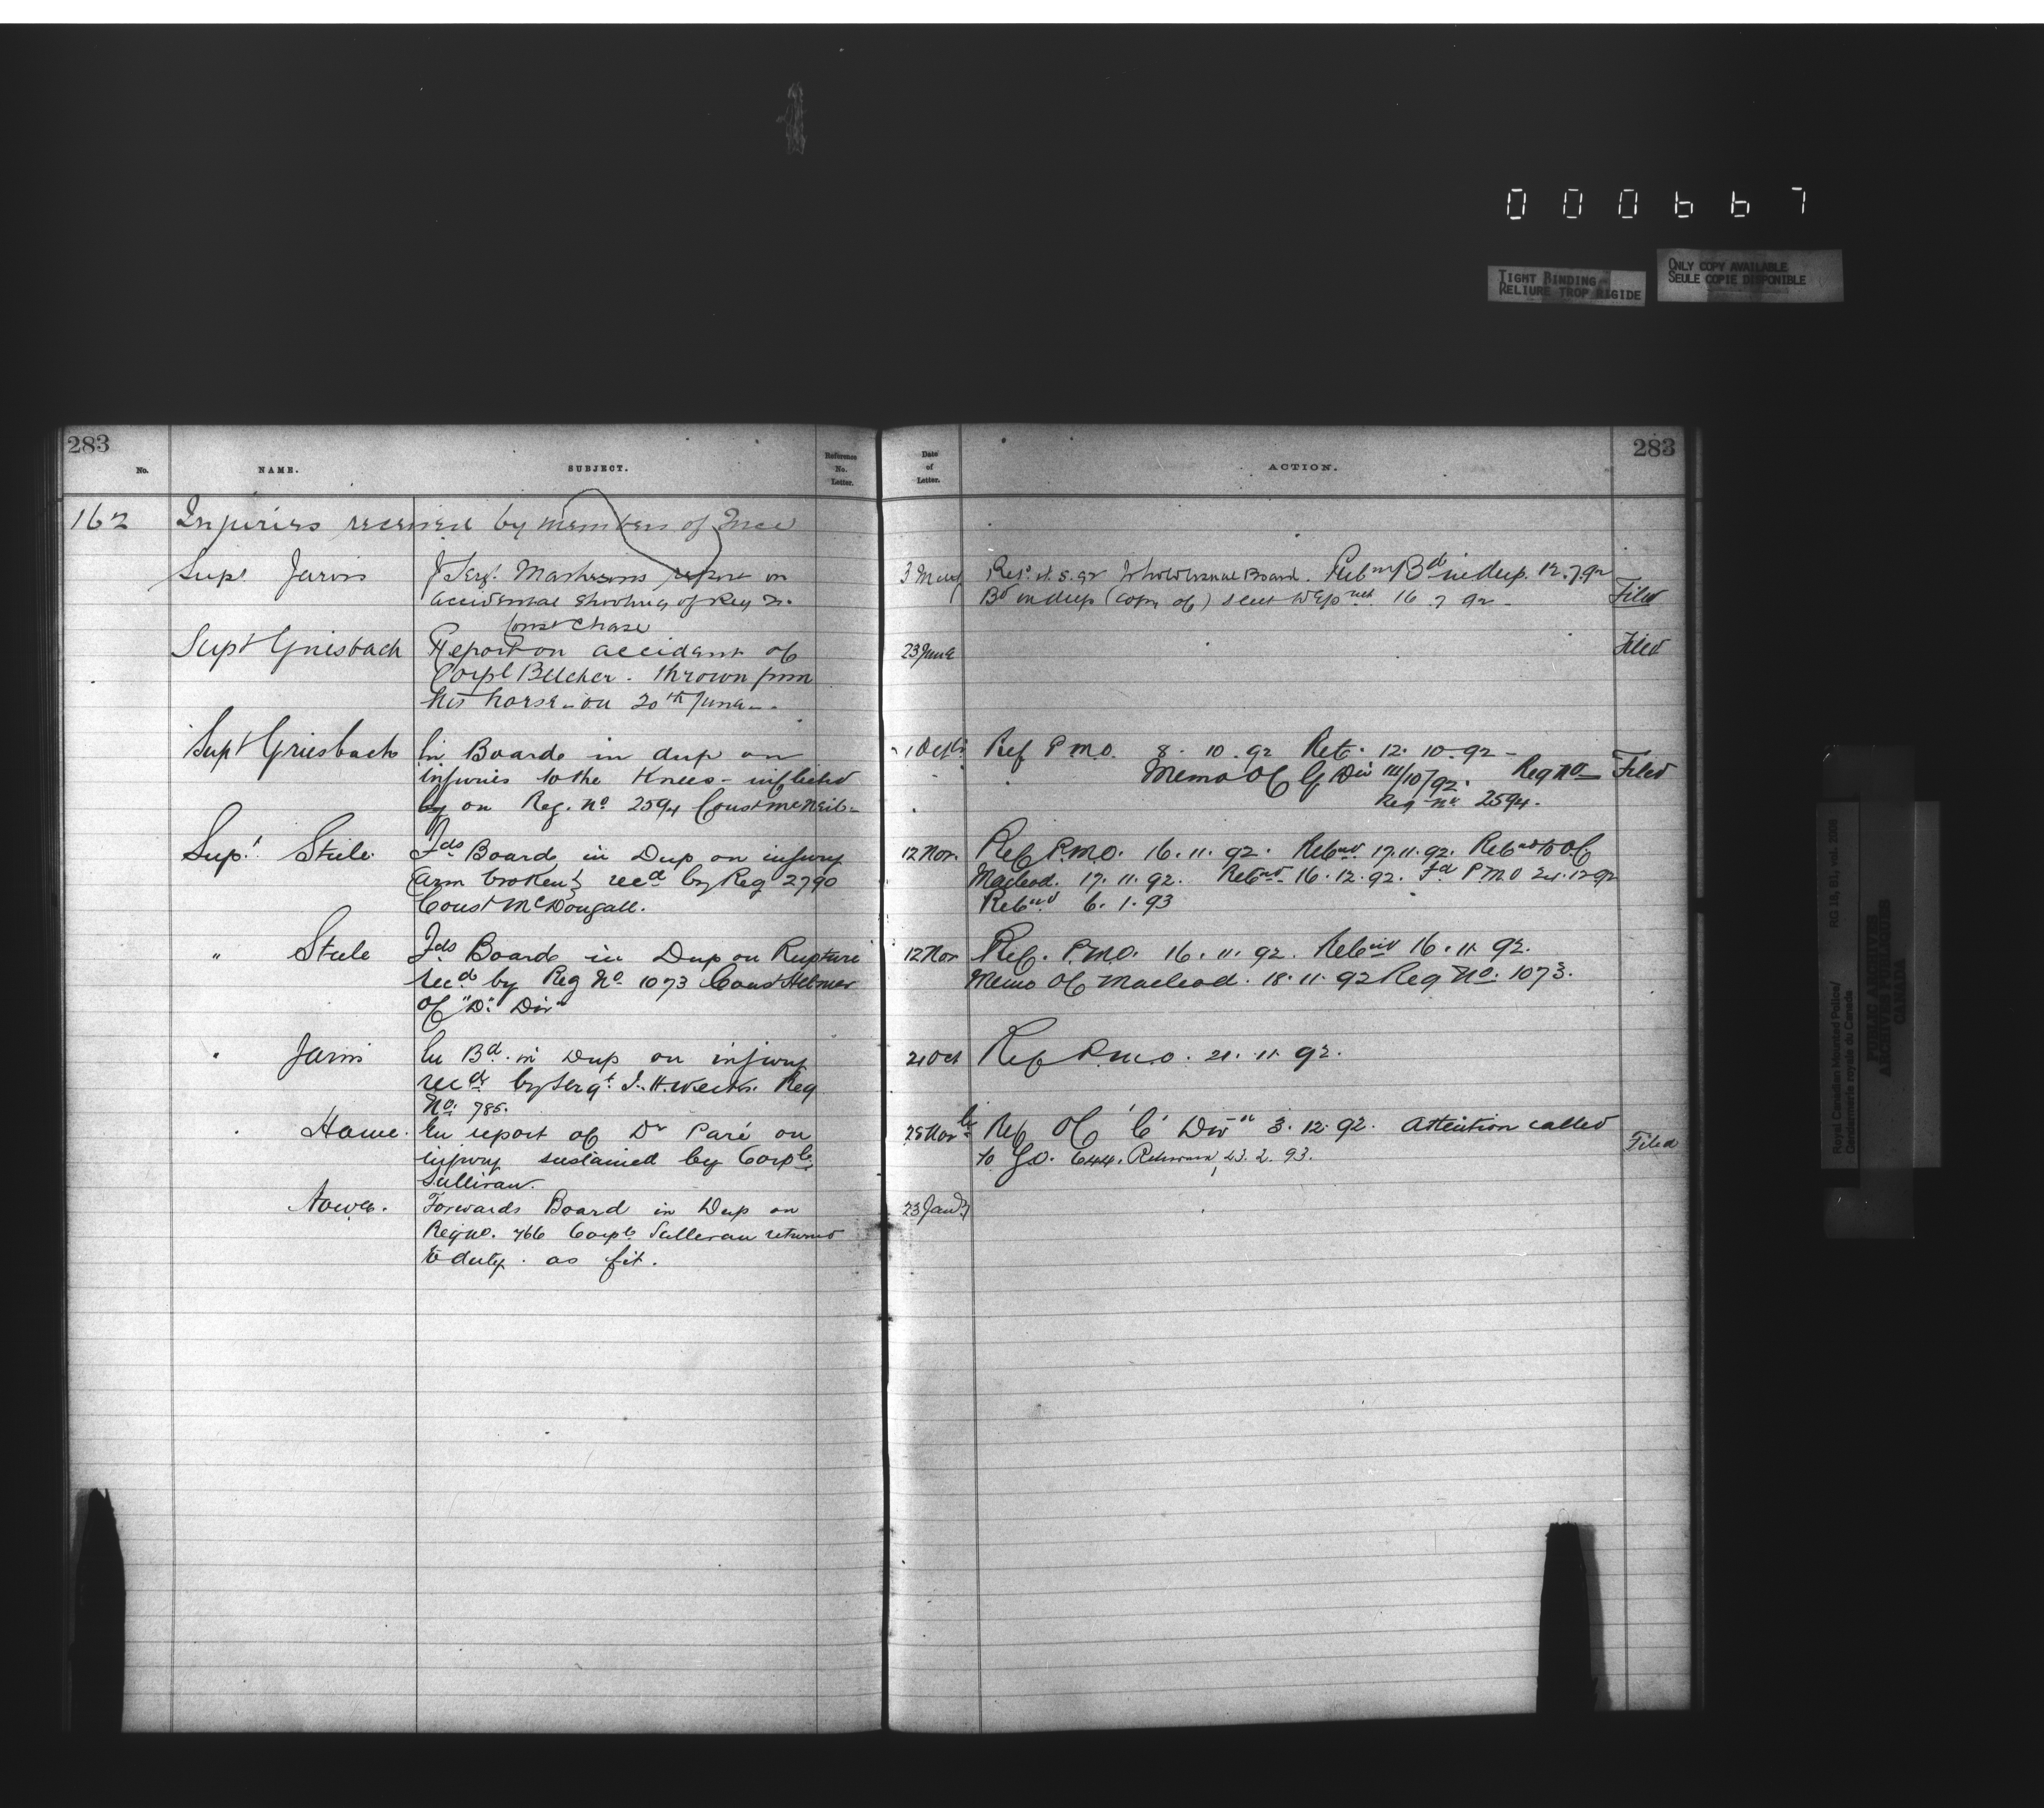 000667
TIGHT BINDING
RELIURE TROP RIGIDE
ONLY COPY AVAILABLE
SEULE COPIE DISPONIBLE
283
No.
NAME.
SUBJECT.
Reference
No.
Letter.
Date
of
Letter.
ACTION.
283
162 Injuries received by members of Force
Supt Jarvis
report on
accidental shooting of Reg No.
Const Chase
3 May
Board. Bd in dup. 12.7.92
Bd in dup (copy of) sent 16 7 92
Filed
Supt Griesbach
Report on accident of
Corpl Belcher. thrown from
his horse - on 20th June -
23 June
Filed
Supt Griesbach
En Boards in dup on
injuries to the Knees - inflicted
by on Reg. No 2594 Const McNeil -
1 Oct
Ref P.M.O. 8. 10. 92 Ret. 12. 10. 92 -
Memo OC G Div 10/92. Reg No
Reg No 2594.
Filed
Supt Steele
Fds Board in Dup on injury
(arm broken) recd by Reg 2790
Const McDougall.
12 Nov.
Ref P.M.O. 16. 11. 92. 17. 11. 92. to OC
Macleod. 17. 11. 92. 16. 12. 92. Fd P.M.O 21. 12 92
6. 1. 93
" Steele
Fds Board in Dup on Rupture
recd by Reg No 1073 Const Helmer
of "D" Div
12 Nov
Ref. P.M.O. 16. 11. 92. 16. 11. 92.
Memo OC Macleod. 18. 11. 92 Reg No. 1073.
" Jarvis
En Bd. in Dup on injury
recd by Sergt Reg
No. 785.
21 Oct
Ref P.M.O. 21. 11. 92.
Howe.
En report of Dr Paré on
injury sustained by Corpl
Sullivan.
25 Nov
Ref OC 'C' Divn 3. 12. 92. Attention called
to G.O. 23. 2. 93.
Filed
Howe.
Forwards Board in Dup on
Reg no. 766 Corpl Sullivan returned
to duty. as fit.
23 Jany
Royal Canadian Mounted Police/
Gendarmerie royale du Canada
PUBLIC ARCHIVES
ARCHIVES PUBLIQUES
CANADA